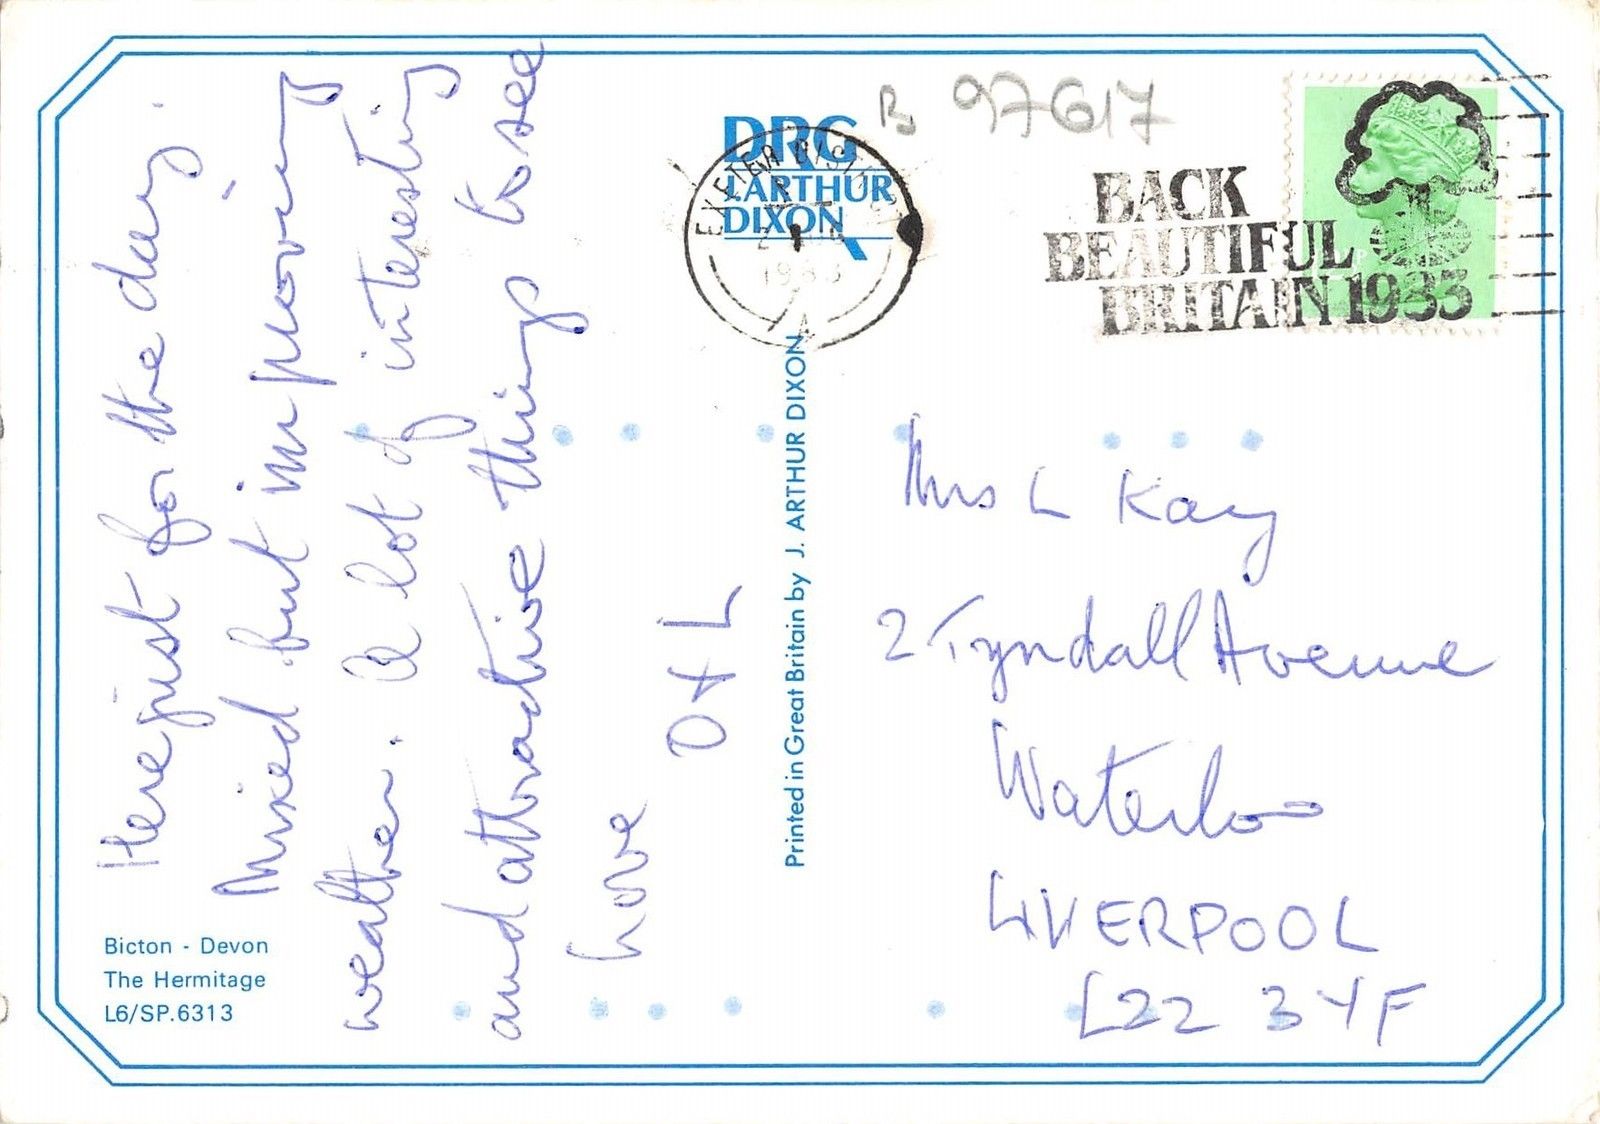 Here just for the day.
Mixed but improving
weather. A lot of interesting
and attractive things to see
here
D + L
Bicton - Devon
The Hermitage
L6/SP.6313
DRG
J.ARTHUR
DIXON
EXETER DIST
1983
A
Printed in Great Britain by J. ARTHUR DIXON
B 97617
BACK
BEAUTIFUL
BRITAIN 1983
Mrs L Kay
2 Tyndall Avenue
Waterloo
LIVERPOOL
L22 3YF